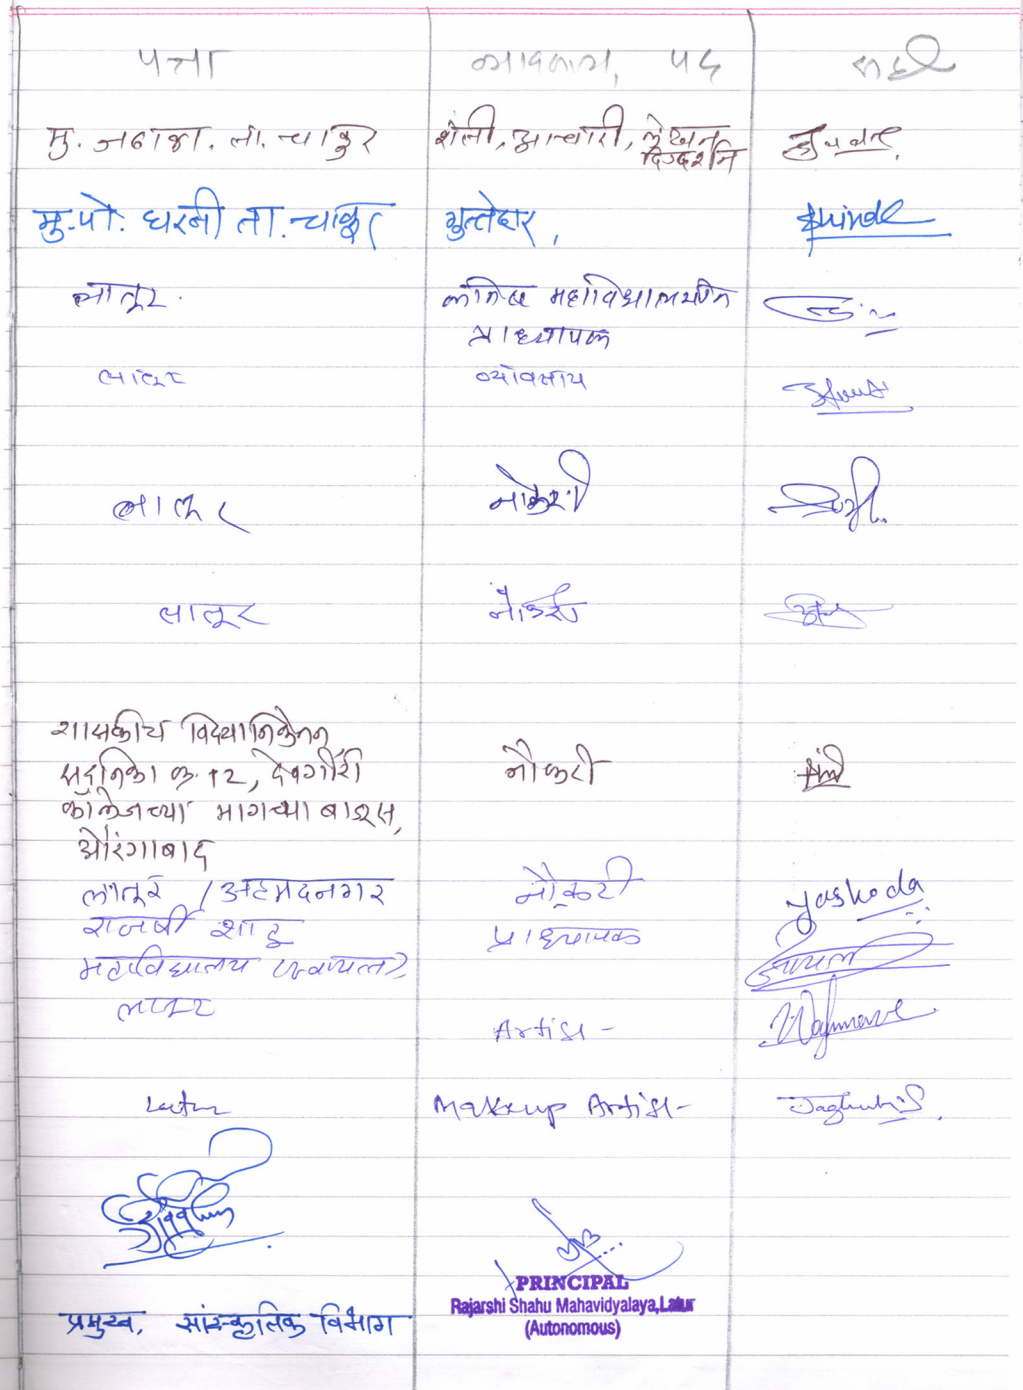 पत्ता व्यवसाय, पद सही
मु. ता. चाकुर शेती, आचारी, लेखन
दिग्दर्शन
मु.पो. घरनी ता. चाकुर गुत्तेदार, Shinde
लातूर. कनिष्ठ महाविद्यालयीन
प्राध्यापक
लातूर व्यावसाय
लातूर नोकरी
लातूर नोकरी
शासकीय विद्यानिकेतन
सदनिका क्र. १२, देवगीरी नौकरी
कॉलेजच्या मागच्या बाजूस,
औरंगाबाद
लातूर / अहमदनगर नौकरी Yashoda
राजर्षी शाहू प्राध्यापक
महाविद्यालय (स्वायत्त),
लातूर Artist - Waghmare
Latur Makeup Artist -
प्रमुख, सांस्कृतिक विभाग
PRINCIPAL
Rajarshi Shahu Mahavidyalaya, Latur
(Autonomous)